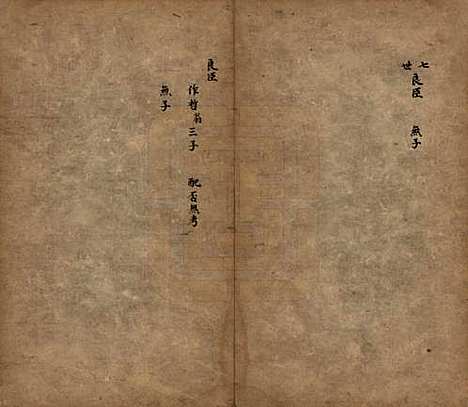 七世
良臣 無子
良臣
作哲翁三子 配否無考
無子